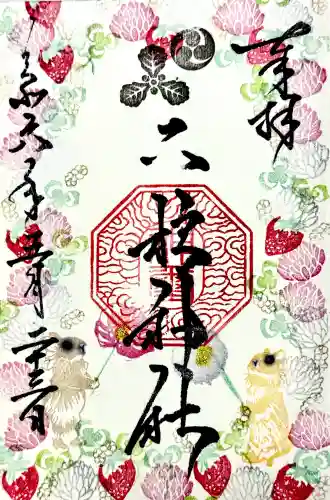 奉拝
二柱神社
令六年五月二十三日